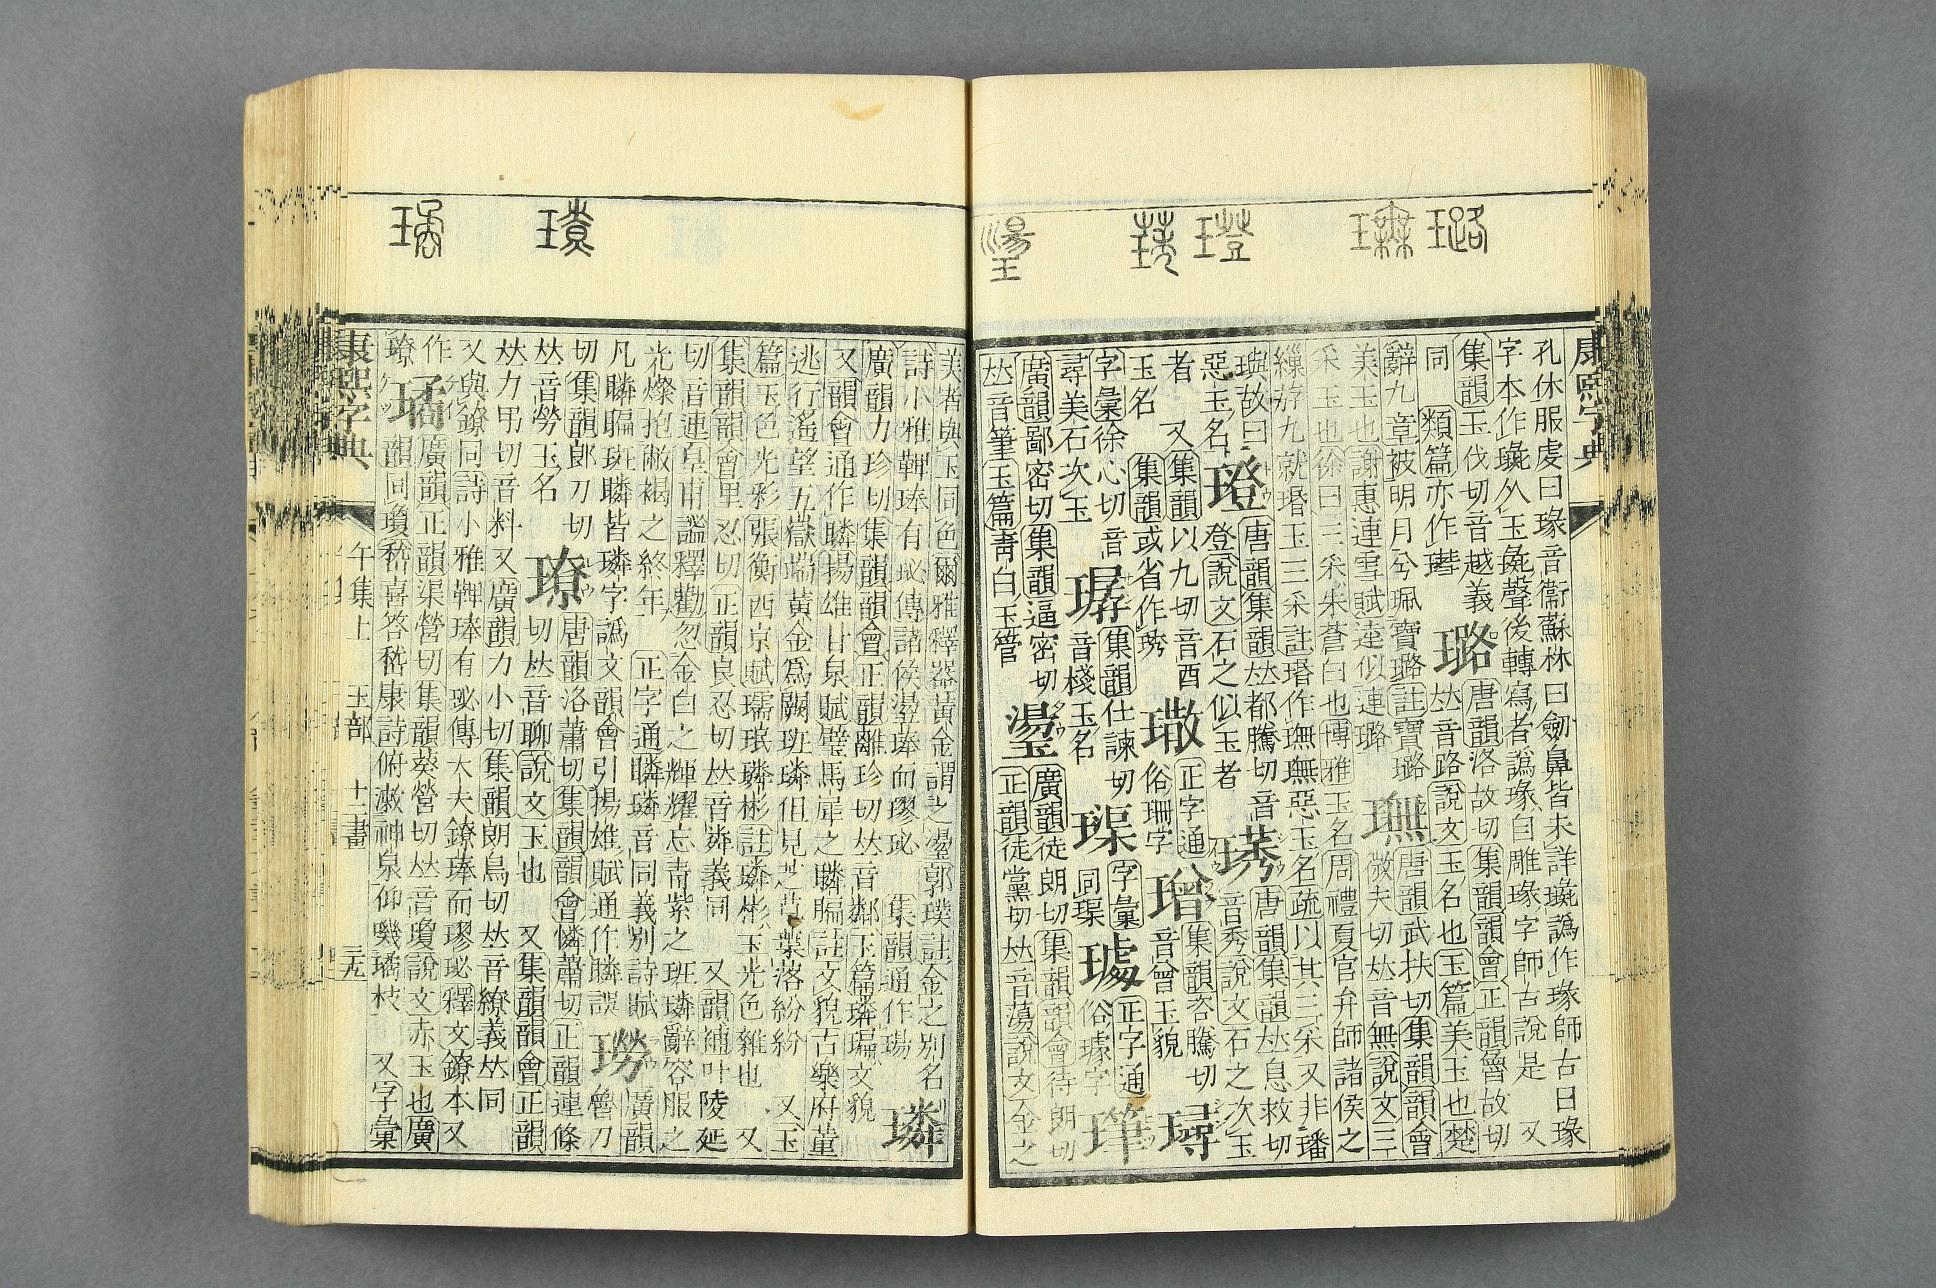 璐 璑 璒 璓 璗
康熙字典
孔休服虔曰瑑音衞蘇林曰劍鼻皆未詳璏譌作瑑師古曰瑑
字本作璏从玉彘聲後轉寫者譌瑑自雕瑑字師古說是 又
集韻玉伐切音越義
同 類篇亦作
璐 唐韻洛故切集韻韻會正韻魯故切
𠀤音路說文玉名也玉篇美玉也楚
辭九章被明月兮珮寶璐註寶璐
美玉也謝惠連雪賦逵似連璐
璑 唐韻武扶切集韻韻會
微夫切𠀤音無說文三
采玉也徐曰三采朱蒼白也博雅玉名周禮夏官弁師諸侯之
繅斿九就瑉玉三采註瑉作璑璑惡玉名疏以其三采又非璠
璵故曰
惡玉名
璒 唐韻集韻𠀤都騰切音
登說文石之似玉者
璓 唐韻集韻𠀤息救切
音秀說文石之次玉
者 又集韻以九切音酉
玉名 集韻或省作琇
正字通
俗珊字
璔 集韻咨騰切
音曾玉貌
璕 字彙徐心切音
尋美石次玉
集韻仕諫切
音棧玉名
字彙
同
璩 正字通
俗璩字
廣韻鄙密切集韻逼密切
𠀤音筆玉篇靑白玉管
璗 廣韻徒朗切集韻韻會待朗切
正韻徒黨切𠀤音蕩說文金之
璚
美者與玉同色爾雅釋器黃金謂之璗郭璞註金之別名
詩小雅鞞琫有珌傳諸侯璗琫而璆珌 集韻通作瑒
璘
廣韻力珍切集韻韻會正韻離珍切𠀤音鄰玉篇璘㻞文貌
又韻會通作瞵揚雄甘泉賦璧馬犀之瞵㻞註文貌古樂府董
逃行遙望五嶽端黃金爲闕班璘但見芝草葉落紛紛 又玉
篇玉色光彩張衡西京賦瓀珉璘彬註璘彬玉光色雜也 又
集韻韻會里忍切正韻良忍切𠀤音嶙義同 又韻補叶陵延
切音連皇甫謐釋勸忽金白之輝耀忘靑紫之班璘辭容服之
光燦抱敝褐之終年 正字通瞵璘音同義別詩賦
凡瞵㻞班瞵皆璘字譌文韻會引揚雄賦通作瞵誤
廣韻
魯刀
切集韻郎刀切
𠀤音勞玉名
璙 唐韻洛蕭切集韻韻會憐蕭切正韻連條
切𠀤音聊說文玉也 又集韻韻會正韻
𠀤力弔切音料又廣韻力小切集韻朗鳥切𠀤音繚義𠀤同
又與鐐同詩小雅鞞琫有珌傳大夫鐐琫而璆珌釋文鐐本又
作
璙
璚 廣韻正韻渠營切集韻葵營切𠀤音瓊說文赤玉也廣
韻同瓊嵇喜答嵇康詩俯漱神泉仰嘰璚枝 又字彙
康熙字典 午集上 玉部 十二畫